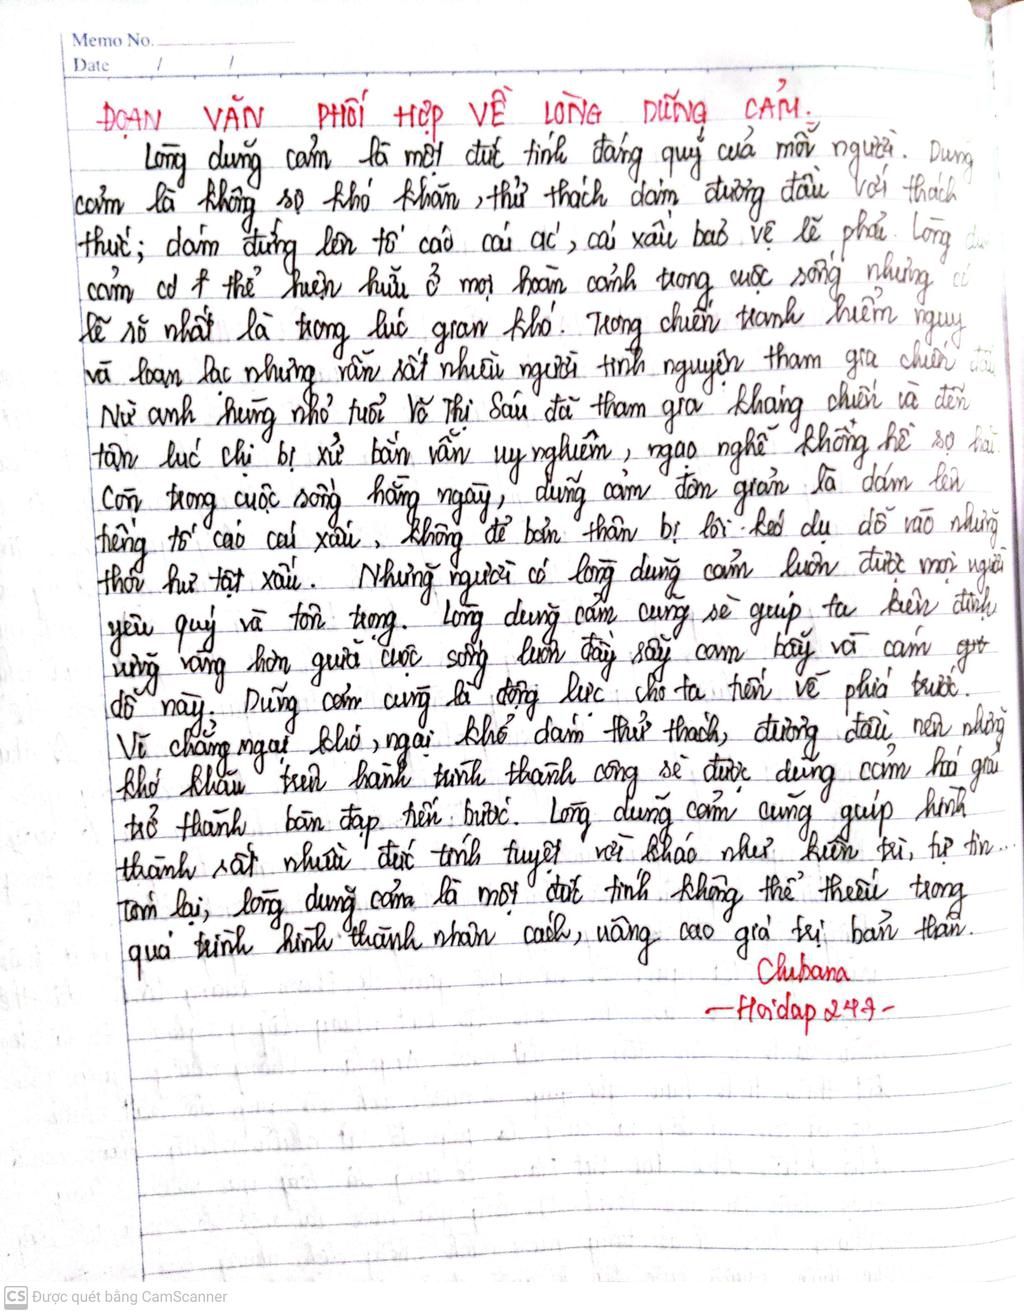 Memo No.
Date / /
ĐOẠN VĂN PHỐI HỢP VỀ LÒNG DŨNG CẢM.
Lòng dũng cảm là một đức tính đáng quý của mỗi người. Dũng
cảm là không sợ khó khăn, thử thách dám đương đầu với thách
thức; dám đứng lên tố cáo cái ác, cái xấu bảo vệ lẽ phải. Lòng
cảm có thể hiện hữu ở mọi hoàn cảnh trong cuộc sống nhưng có
lẽ rõ nhất là trong lúc gian khó. Trong chiến tranh hiểm nguy
và loạn lạc nhưng vẫn rất nhiều người tình nguyện tham gia chiến đấu
Nữ anh hùng nhỏ tuổi Võ Thị Sáu đã tham gia kháng chiến và đến
tận lúc chị bị xử bắn vẫn uy nghiêm, ngạo nghễ không hề sợ hãi.
Còn trong cuộc sống hằng ngày, dũng cảm đơn giản là dám lên
tiếng tố cáo cái xấu, không để bản thân bị lôi kéo dụ dỗ vào những
thói hư tật xấu. Những người có lòng dũng cảm luôn được mọi người
yêu quý và tôn trọng. Lòng dũng cảm cũng sẽ giúp ta kiên định
vững vàng hơn giữa cuộc sống luôn đầy rẫy cam bẫy và cám giỗ
dỗ này. Dũng cảm cũng là động lực cho ta tiến về phía trước.
Vì chẳng ngại khó, ngại khổ dám thử thách, đương đầu nên những
khó khăn trên hành trình thành công sẽ được dũng cảm hoá giải
trở thành bàn đạp tiến bước. Lòng dũng cảm cũng giúp hình
thành rất nhiều đức tính tuyệt vời khác như kiên trì, tự tin...
Tóm lại, lòng dũng cảm là một đức tính không thể thiếu trong
quá trình hình thành nhân cách, nâng cao giá trị bản thân.
Chibana
- Hoidap 247 -
CS Được quét bằng CamScanner